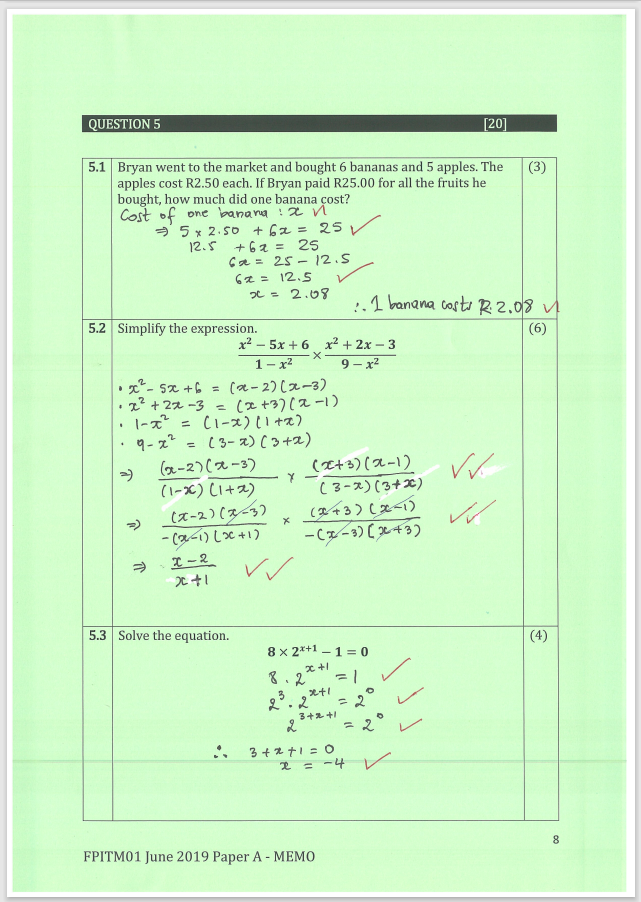 QUESTION 5 [20]
5.1 Bryan went to the market and bought 6 bananas and 5 apples. The (3)
apples cost R2.50 each. If Bryan paid R25.00 for all the fruits he
bought, how much did one banana cost?
Cost of one banana : x
⇒ 5 × 2.50 + 6x = 25
12.5 + 6x = 25
6x = 25 - 12.5
6x = 12.5
x = 2.08
∴ 1 banana costs R2.08
5.2 Simplify the expression. (6)
(x² − 5x + 6)/(1 − x²) × (x² + 2x − 3)/(9 − x²)
• x² - 5x + 6 = (x-2)(x-3)
• x² + 2x - 3 = (x+3)(x-1)
• 1-x² = (1-x)(1+x)
• 9-x² = (3-x)(3+x)
⇒ (x-2)(x-3)/(1-x)(1+x) × (x+3)(x-1)/(3-x)(3+x)
⇒ (x-2)(x-3)/-(x-1)(x+1) × (x+3)(x-1)/-(x-3)(x+3)
⇒ x-2/x+1
5.3 Solve the equation. (4)
8 × 2ˣ⁺¹ − 1 = 0
8 . 2ˣ⁺¹ = 1
2³ . 2ˣ⁺¹ = 2⁰
2³⁺ˣ⁺¹ = 2⁰
∴ 3+x+1 = 0
x = -4
8
FPITM01 June 2019 Paper A - MEMO